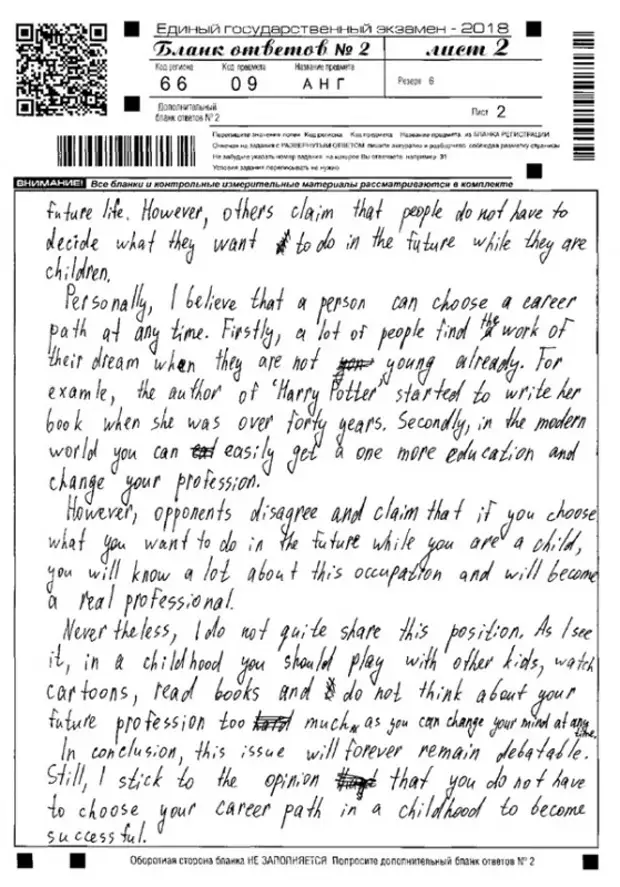 Единый государственный экзамен - 2018
Бланк ответов № 2 лист 2
Код региона Код предмета Название предмета
66 09 АНГ Резерв 6
Дополнительный
бланк ответов № 2
Лист 2
Перепишите значения полей Код региона Код предмета Название предмета из БЛАНКА РЕГИСТРАЦИИ
Отвечая на задания с РАЗВЕРНУТЫМ ОТВЕТОМ пишите аккуратно и разборчиво соблюдая разметку страницы
Не забудьте указать номер задания на которое Вы отвечаете например 31
Условия задания переписывать не нужно
ВНИМАНИЕ! Все бланки и контрольные измерительные материалы рассматриваются в комплекте
future life. However, others claim that people do not have to
decide what they want to do in the future while they are
children.
Personally, I believe that a person can choose a career
path at any time. Firstly, a lot of people find the work of
their dream when they are not young already. For
examle, the author of 'Harry Potter' started to write her
book when she was over forty years. Secondly, in the modern
world you can easily get a one more education and
change your profession.
However, opponents disagree and claim that if you choose
what you want to do in the future while you are a child,
you will know a lot about this occupation and will become
a real professional.
Never theless, I do not quite share this position. As I see
it, in a childhood you should play with other kids, watch
cartoons, read books and do not think about your
future profession too much, as you can change your mind at any time.
In conclusion, this issue will forever remain debatable.
Still, I stick to the opinion that you do not have
to choose your career path in a childhood to become
successful.
Оборотная сторона бланка НЕ ЗАПОЛНЯЕТСЯ Попросите дополнительный бланк ответов № 2